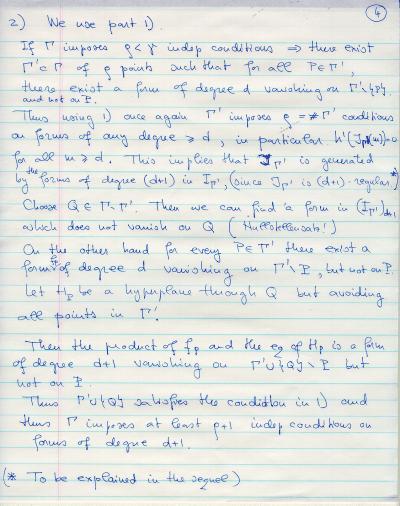 4
2) We use part 1)
If Γ imposes ρ < γ indep conditions ⇒ there exist
Γ' ⊂ Γ of ρ points such that for all P ∈ Γ',
there exists a form of degree d vanishing on Γ'\{P}
and not on P.
Thus using 1) once again Γ' imposes ρ = #Γ' conditions
on forms of any degree ≥ d, in particular h¹(I_Γ'(m))=0
for all m ≥ d. This implies that I_Γ' is generated
by the forms of degree (d+1) in I_Γ', (since I_Γ' is (d+1)-regular*)
Choose Q ∈ Γ \ Γ'. Then we can find a form in (I_Γ')_d+1
which does not vanish on Q (Nullstellensatz!)
On the other hand for every P ∈ Γ' there exist a
form f_P of degree d vanishing on Γ' \ P, but not on P.
Let H_P be a hyperplane through Q but avoiding
all points in Γ'.
Then the product of f_P and the eq of H_P is a form
of degree d+1 vanishing on Γ' ∪ {Q} \ P but
not on P.
Thus Γ' ∪ {Q} satisfies the condition in 1) and
thus Γ imposes at least ρ+1 indep conditions on
forms of degree d+1.
(* To be explained in the sequel)